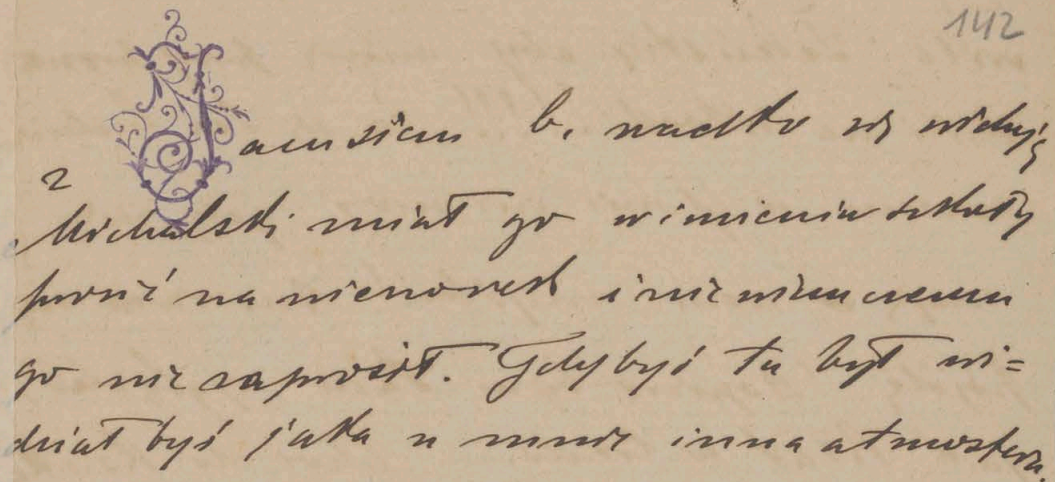 142
z Janusiem b. rzadko się widuję
Michalski miał go w imieniu szkoły
prosić na wieczorek i nie wiem czemu
go nie zaprosił. Gdybyś tu był wi=
dział byś jaka u mnie inna atmosfera.